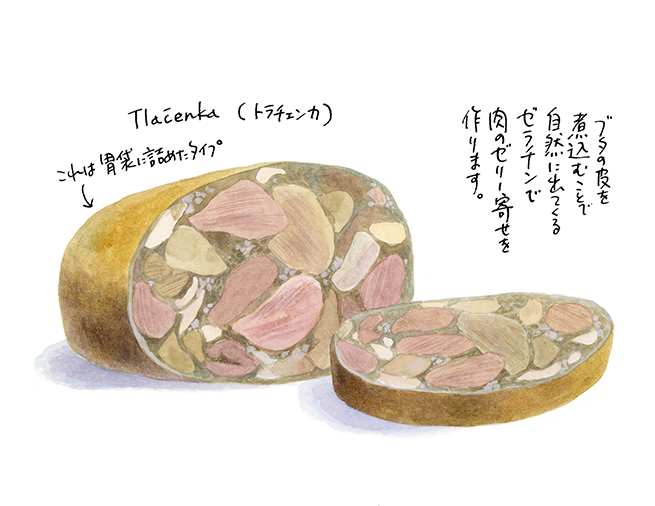 Tlačenka (トラチェンカ)
これは胃袋に詰めたタイプ
ブタの皮を
煮込むことで
自然に出てくる
ゼラチンで
肉のゼリー寄せを
作ります。